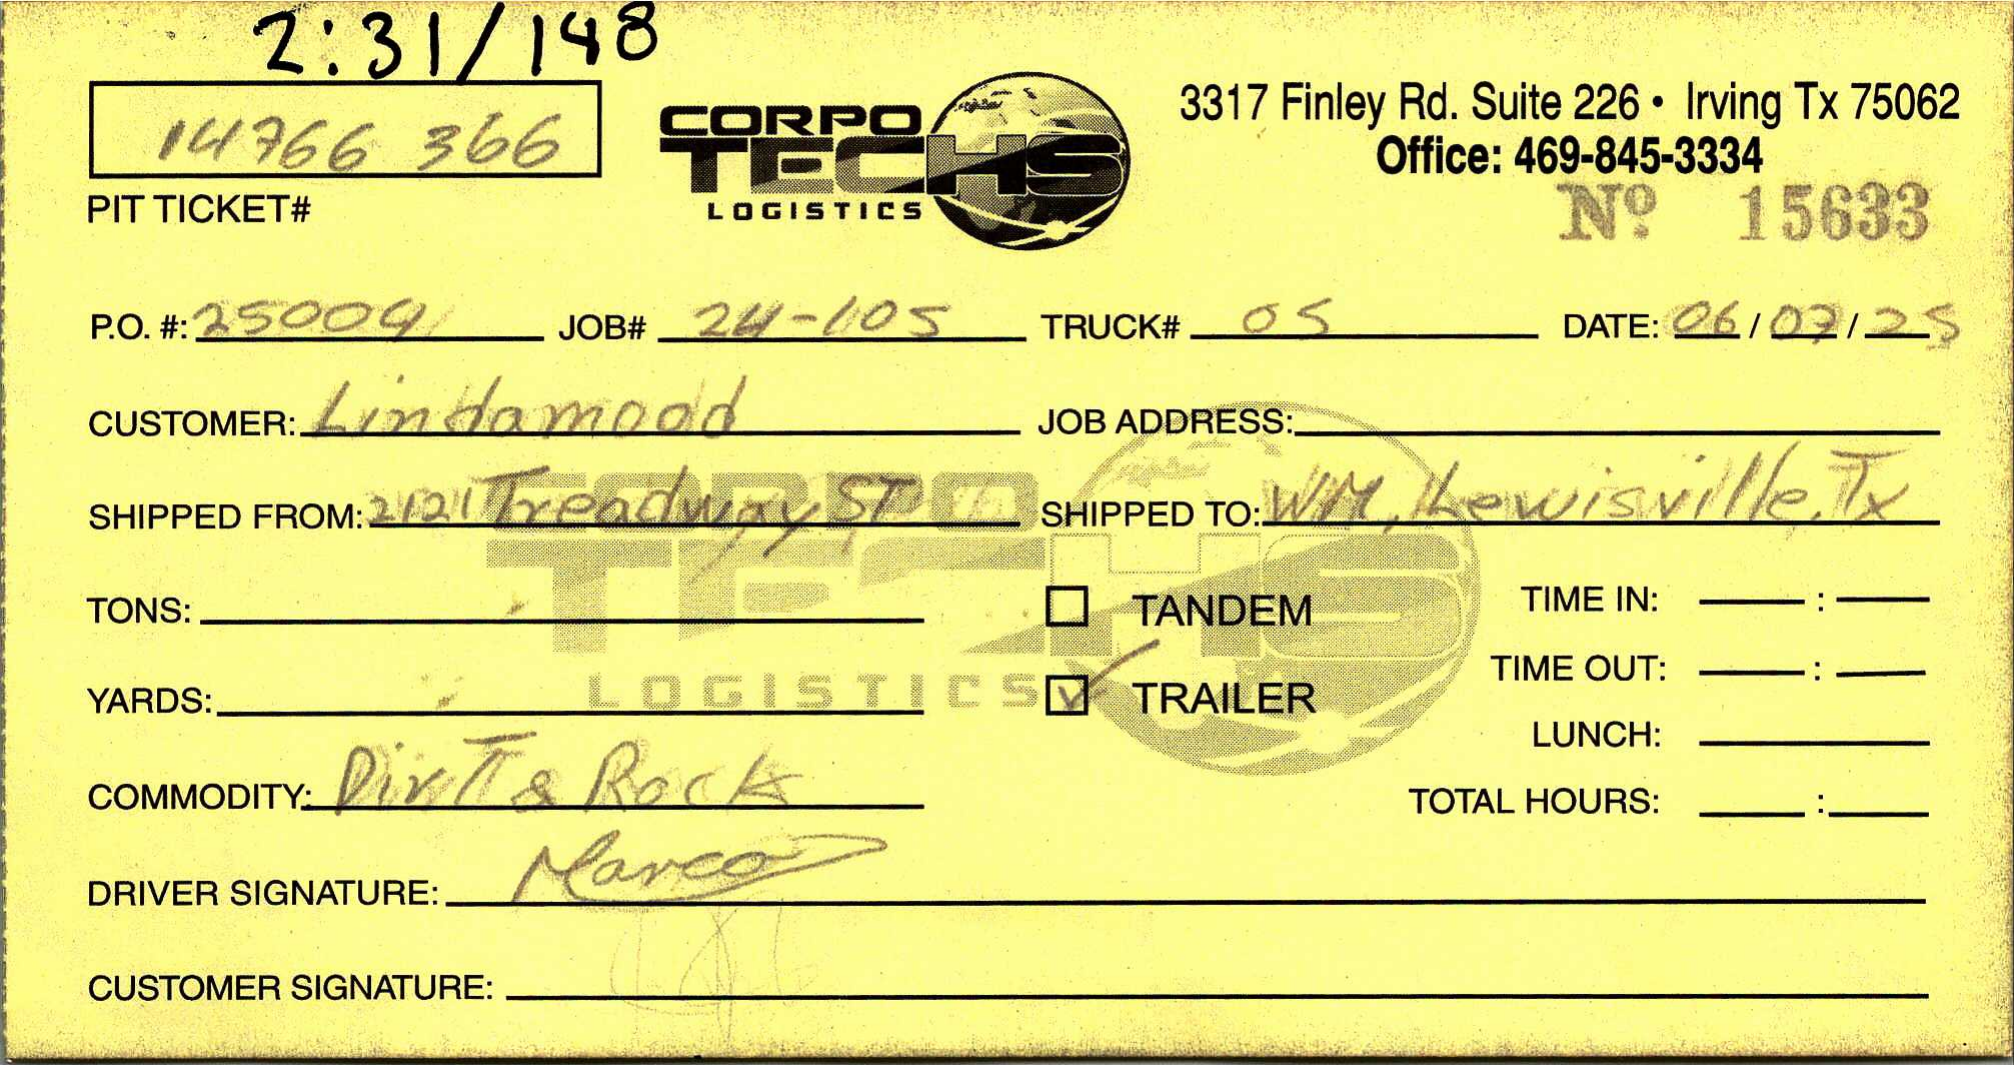 2:31/148
14766 366
PIT TICKET#
CORPO
TECHS
LOGISTICS
3317 Finley Rd. Suite 226 • Irving Tx 75062
Office: 469-845-3334
Nº 15633
P.O. #: 25009 JOB# 24-105 TRUCK# 05 DATE: 06/07/25
CUSTOMER: Lindamood JOB ADDRESS:
SHIPPED FROM: 2121 Treadway ST SHIPPED TO: WM, Lewisville, Tx
TONS: TANDEM TIME IN: :
YARDS: TRAILER TIME OUT: :
LUNCH:
COMMODITY: Dirt & Rock TOTAL HOURS: :
DRIVER SIGNATURE: Marco
CUSTOMER SIGNATURE:
CORPO
TECHS
LOGISTICS